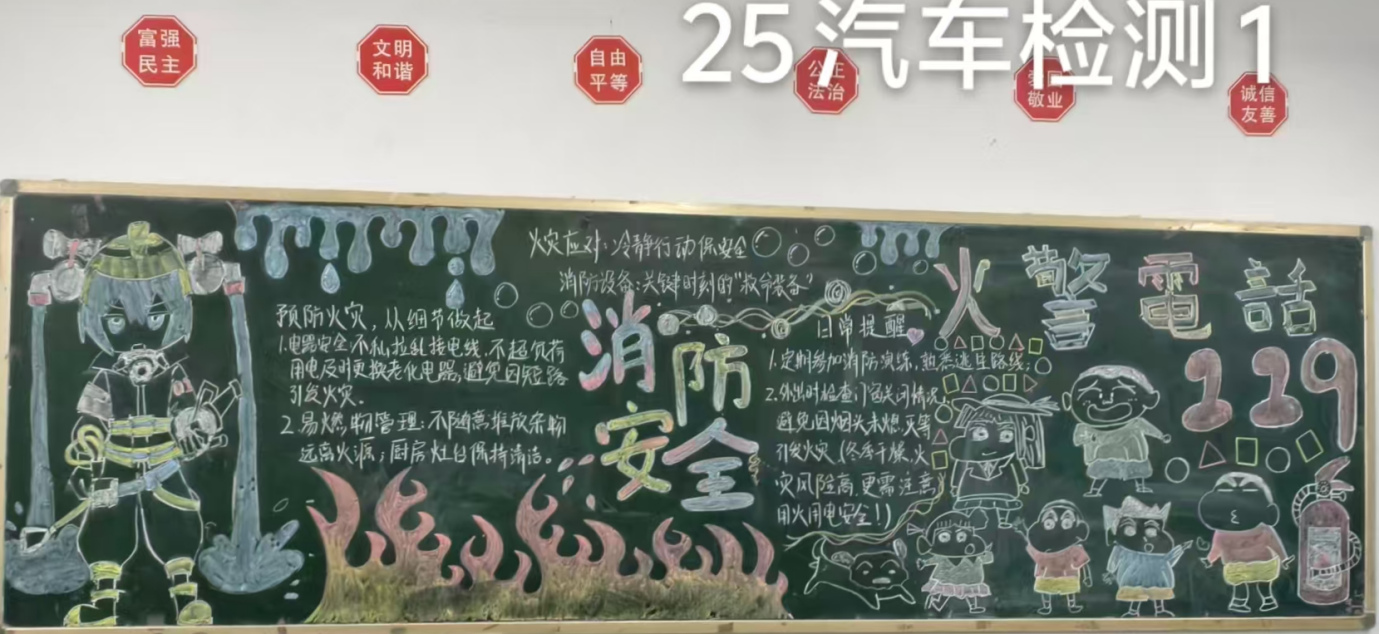 25,汽车检测1
富强
民主
文明
和谐
自由
平等
公正
法治
敬业
诚信
友善
火灾应对:冷静行动保安全
消防设备:关键时刻的“救命装备”
预防火灾,从细节做起
1.电器安全:不私拉乱接电线,不超负荷
用电及时更换老化电器,避免因短路
引发火灾。
2.易燃物管理:不随意堆放杂物
远离火源;厨房灶台保持清洁。
消防
安全
日常提醒
1.定期参加消防演练,熟悉逃生路线;
2.外出时检查门窗关闭情况,
避免因烟头未熄灭等
引发火灾.(冬季干燥、火
灾风险高,更需注意
用火用电安全!)
火警電話
119